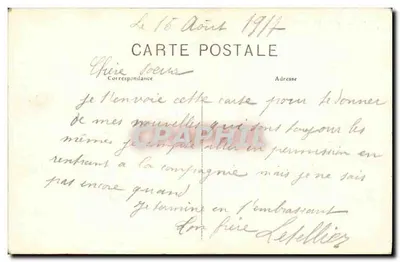 Le 16 Août 1917
CARTE POSTALE
Chère soeur
Correspondance Adresse
je t'envoie cette carte pour te donner
de mes nouvelles qui sont toujours les
mêmes je en permission en
rentrant a la compagnie mais je ne sais
pas encore quand
je termine en t'embrassant
ton frère Letellier
CRAPHI